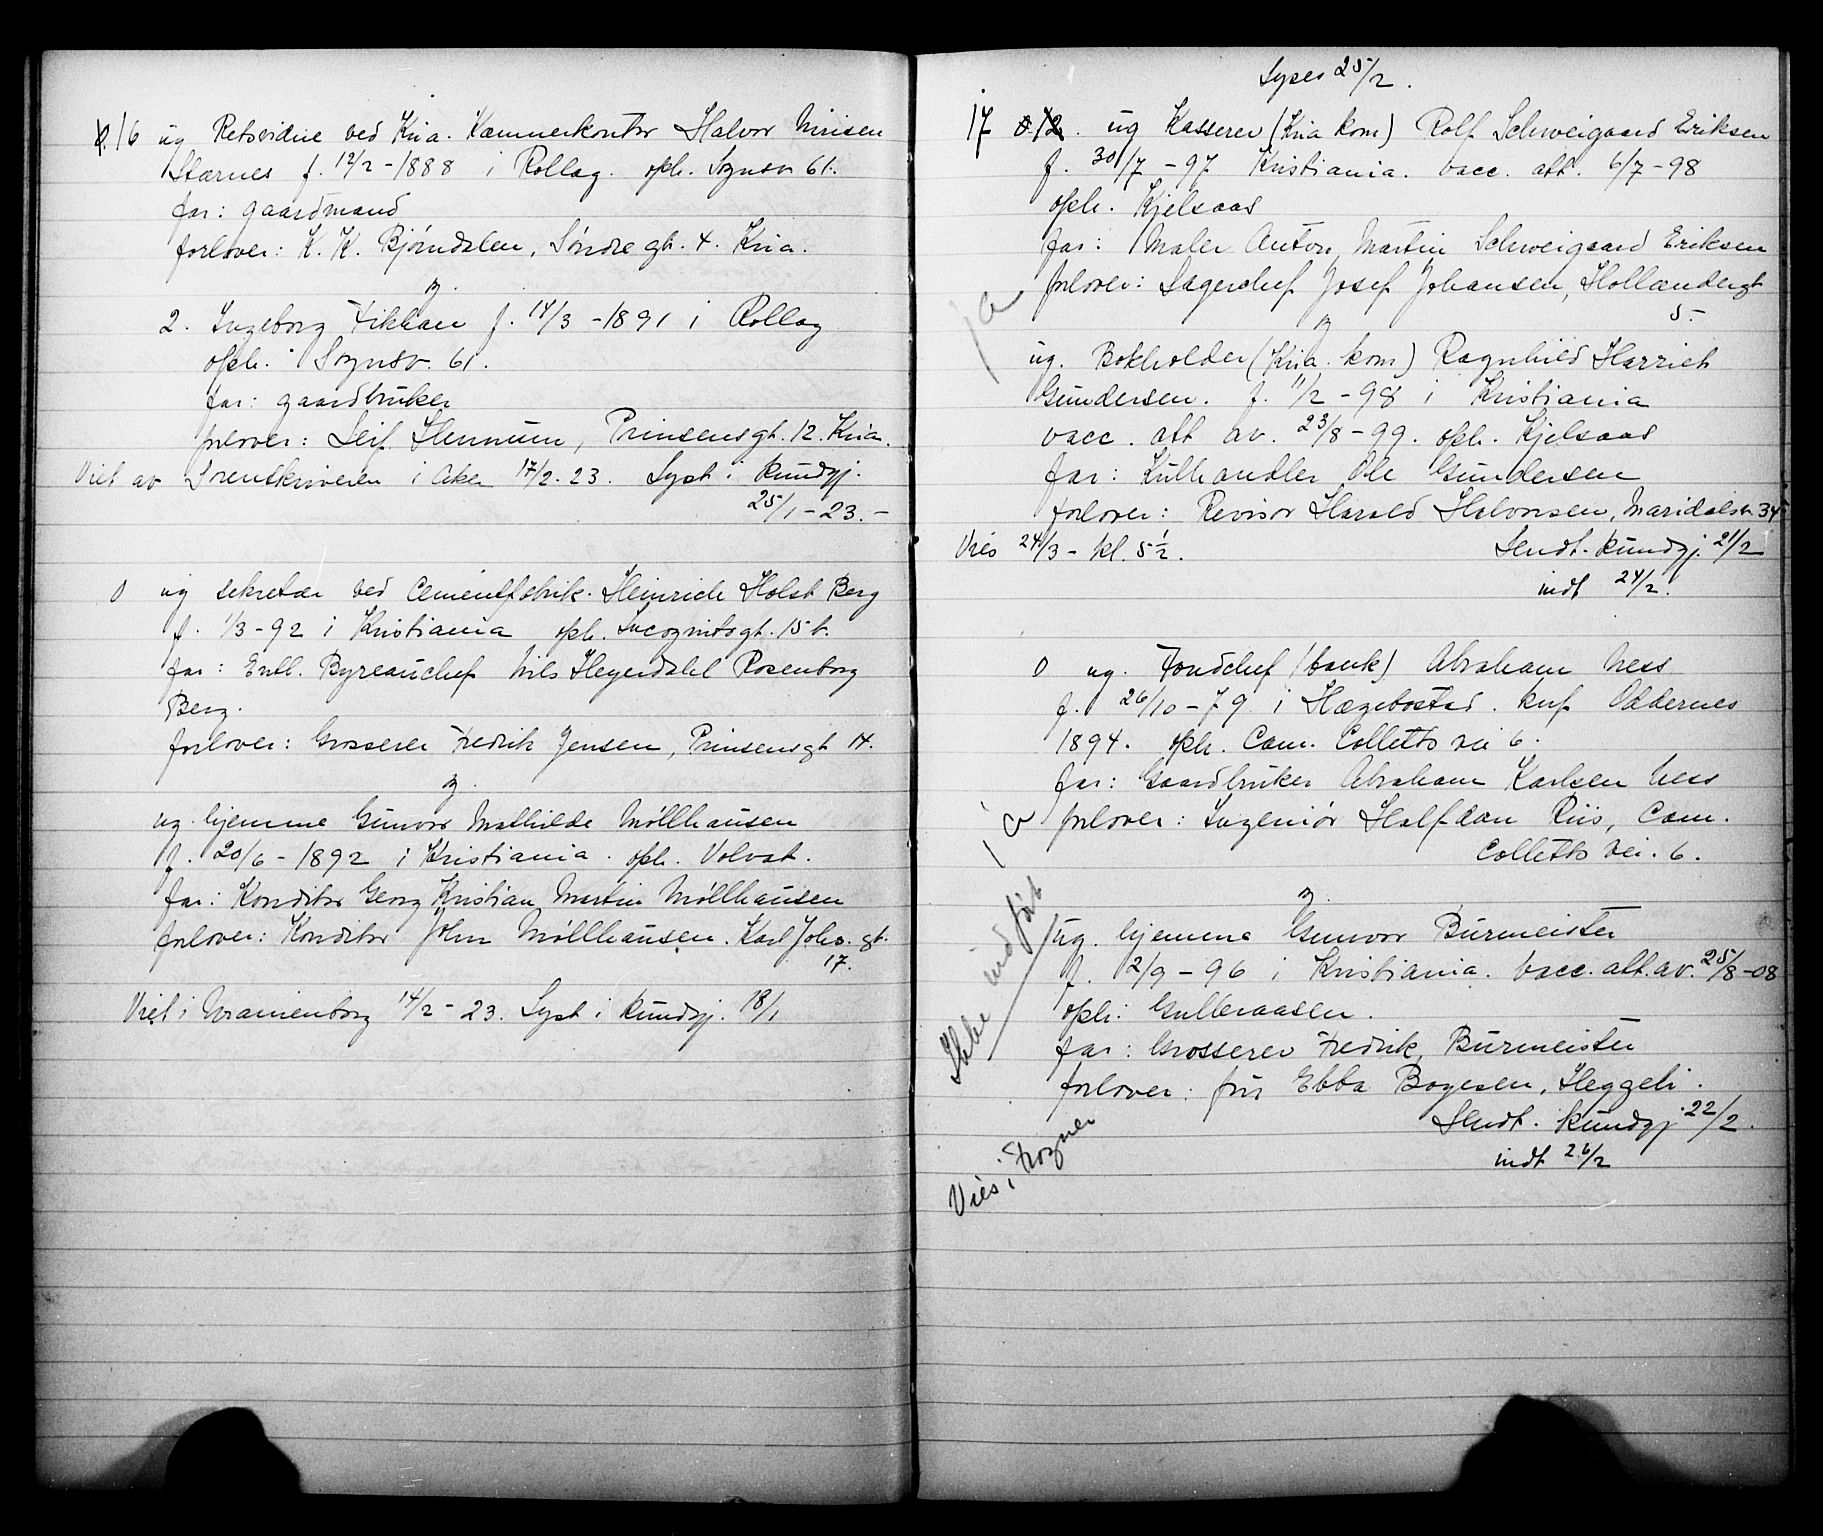 16 ug Retsvidne ved Kria. Kæmnerkontor Halvor Nirisen
Stærnes f. 12/2 - 1888 i Rollag. oph. Sognsv. 61.
far: gaardmand
forlover: K. K. Bjørndalen, Søndre gt. 4. Kria.
og
2. Ingeborg Fikkan f. 14/3 - 1891 i Rollag
oph. Sognsv. 61.
far: gaardbruker
forlover: Leif Hennum, Prinsensgt. 12. Kria.
Viet av Sorenskriveren i Aker 17/2. 23. Lyst i kundgj.
25/1 - 23. -
0 ug sekretær ved Cementfabrik. Heinrich Holst Berg
f. 1/3 - 92 i Kristiania oph. Incognitogt. 15 b.
far: Entl. Byreauchef Nils Heyerdahl Rosenborg
Berg.
forlover: Grosserer Fredrik Jensen, Prinsensgt 14.
og.
ug. hjemme Gunvor Mathilde Møllhausen
f. 20/6 - 1892 i Kristiania. oph. Volvat.
far: Konditor Georg Kristian Martin Møllhausen
forlover: Konditor John Møllhausen. Karl Johs. gt.
17.
Viet i Uranienborg 14/2 - 23. Lyst i kundgj. 18/1
Lyses 25/2.
17 ug Kasserer (Kria kom) Rolf Schweigaard Eriksen
f. 30/7 - 97 Kristiania. vacc. att. 6/7 - 98
oph. Kjelsaas
far: Maler Anton Martin Schweigaard Eriksen
forlover: Lagerchef Josef Johansen, Hollændergt
5.
ja
og
ug. Bokholder (Kria. kom) Ragnhild Harriet
Gundersen. f. 11/2 - 98 i Kristiania
vacc. att av. 23/8 - 99. oph. Kjelsaas
far: Kulhandler Ole Gundersen
forlover: Revisor Harald Halvorsen, Maridalsv. 34
Vies 24/3 - kl. 5 1/2. Sendt. kundgj. 21/2
indt 24/2.
0 ug. Fondchef (bank) Abraham Ness
f. 26/10 - 79 i Hægebostad. knf Oddernes
1894. oph. Cam. Colletts vei 6.
far: Gaardbruker Abraham Karlsen Ness
forlover: Ingeniør Halfdan Riis, Cam.
Colletts vei. 6.
ja
og
ug. hjemme Gunvor Burmeister
f. 2/9 - 96 i Kristiania. vacc. att. av. 25/8 - 08
oph: Gulleraasen.
far: Grosserer Fredrik Burmeister
forlover: fru Ebba Boyesen, Heggeli.
Sendt. kundgj. 22/2.
indt 26/2
Ikke indført
Vies i Frogner